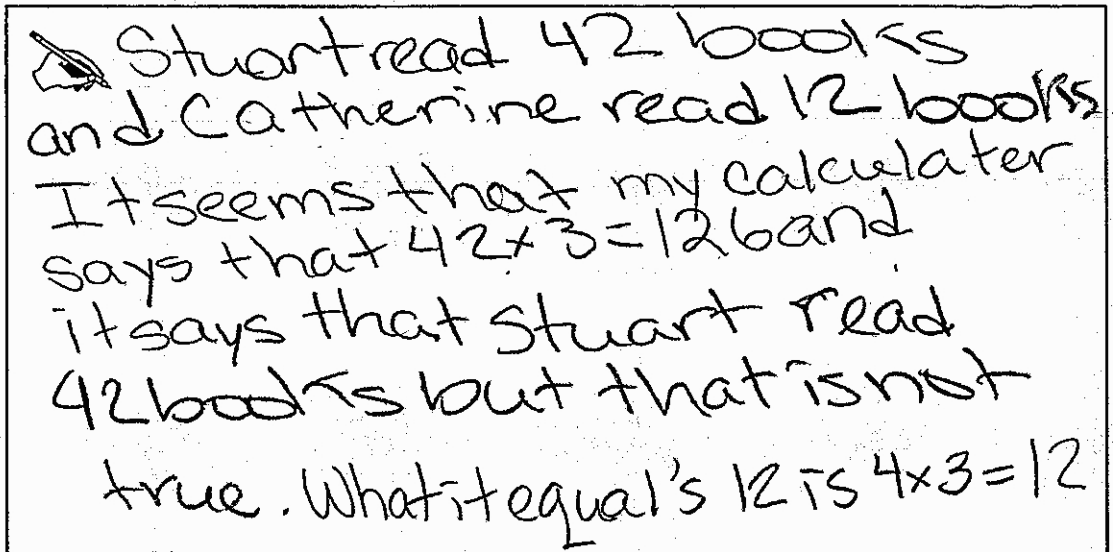 Stuart read 42 books
and Catherine read 12 books
It seems that my calculater
says that 42x3=126and
it says that Stuart read
42 books but that is not
true. What it equal's 12 is 4x3=12